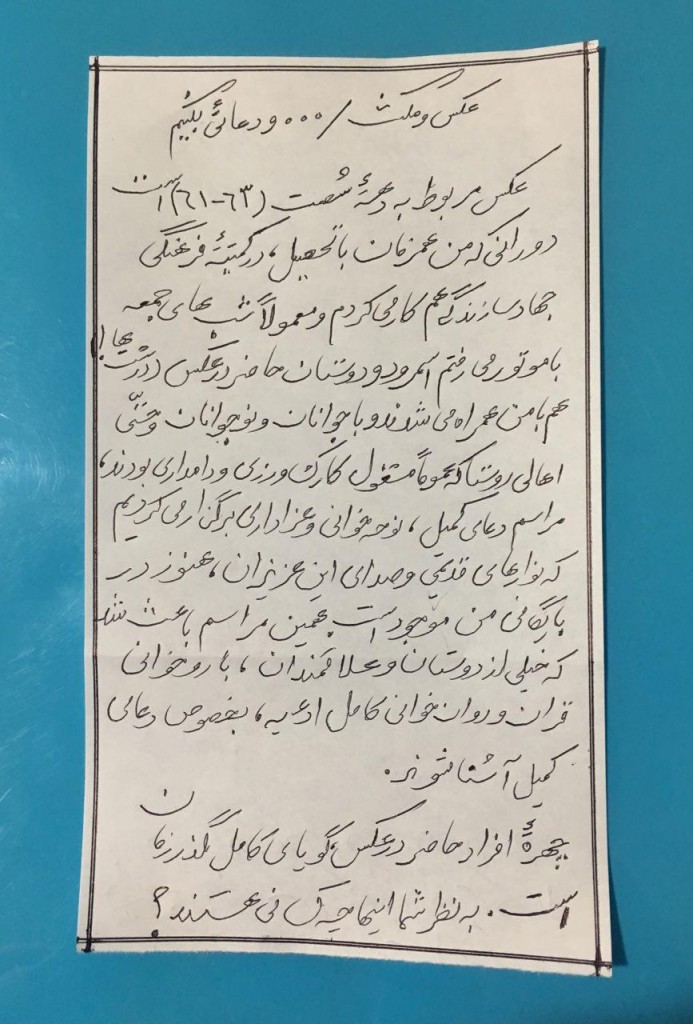 عکس و مکث / ... و دعائی بکنیم
عکس مربوط به دههٔ شصت (۶۳-۶۱) است
دورانی که من همزمان با تحصیل، در کمیتهٔ فرهنگی
جهاد سازندگی هم کار می کردم و معمولاً شب های جمعه
با موتور می رفتم اسمرود و دوستان حاضر در عکس (درشت ها!)
هم با من همراه می شدند و با جوانان و نوجوانان و حتّی
اهالی روستا که عموماً مشغول کار کشاورزی و دامداری بودند،
مراسم دعای کمیل، نوحه خوانی و عزاداری برگزار می کردیم
که نوارهای قدیمی و صدای این عزیزان، هنوز در
بایگانی من موجود است همین مراسم باعث شد
که خیلی از دوستان و علاقمندان، با روخوانی
قرآن و روان خوانی کامل ادعیه، بخصوص دعای
کمیل آشنا شوند.
چهرهٔ افراد حاضر در عکس، گویای کامل گذر زمان
است. به نظر شما اینها چه کسانی هستند؟